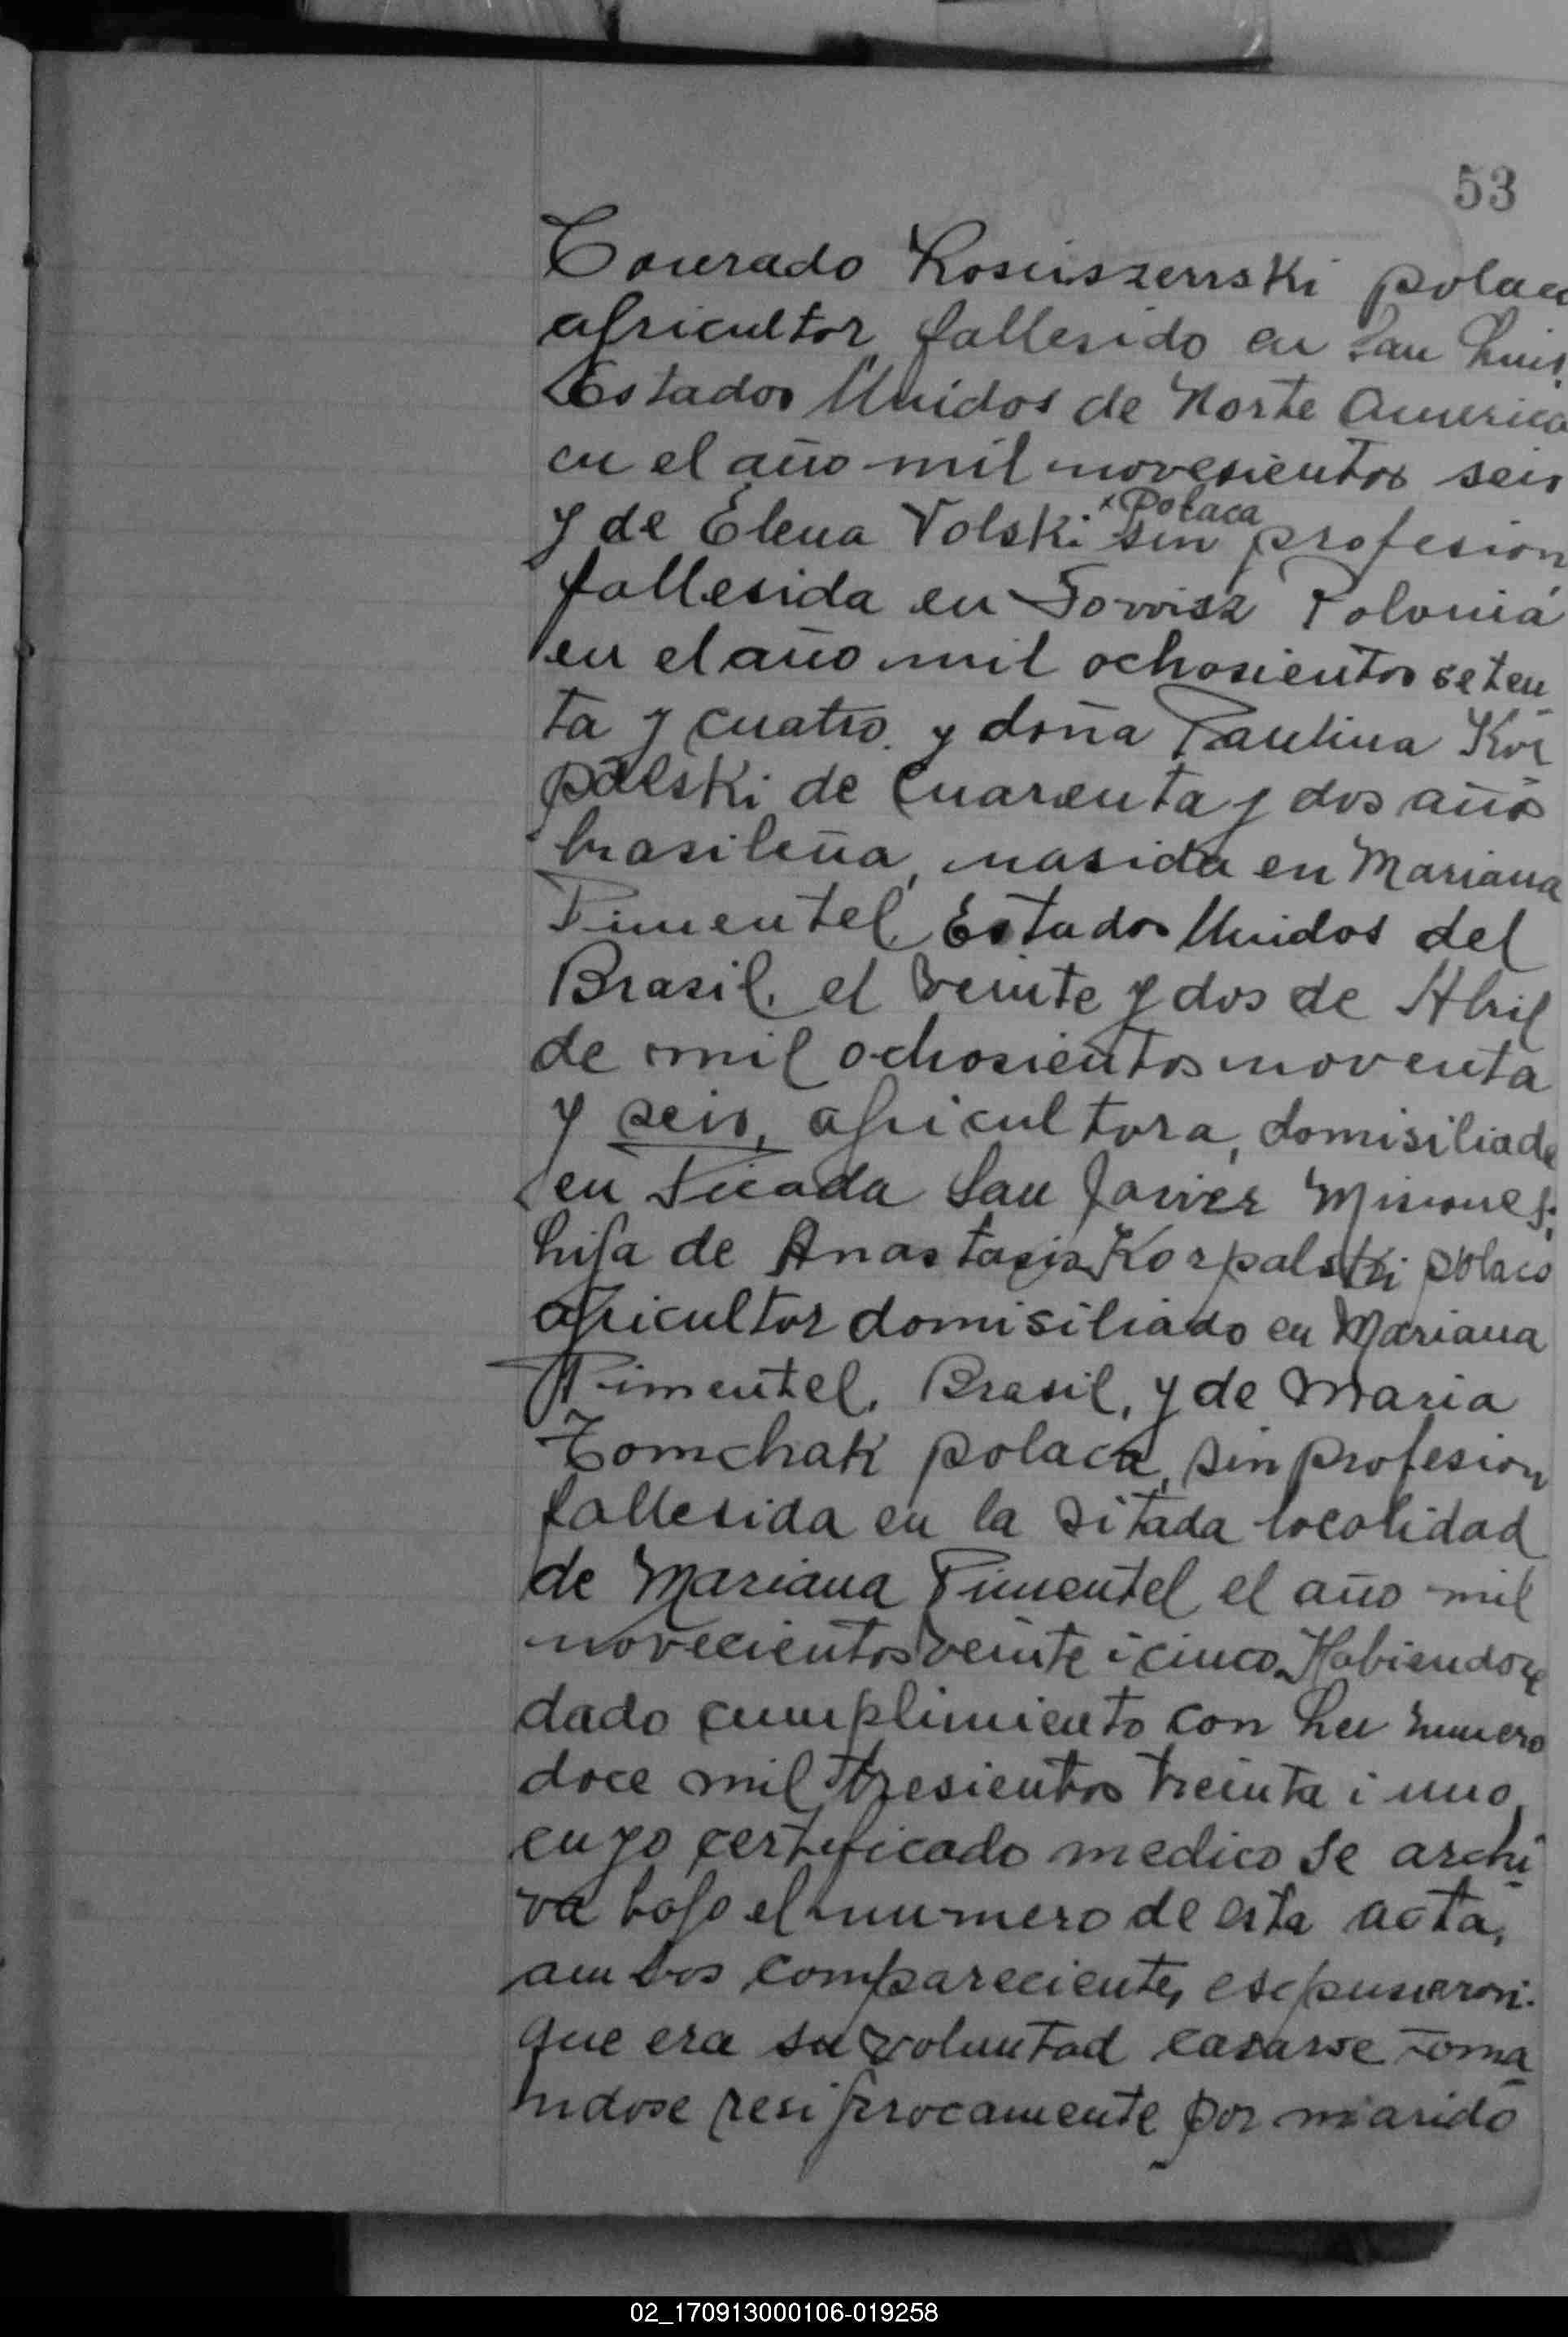 53
Conrado Kosciszerrski polaco
agricultor fallesido en San Luis,
Estados Unidos de Norte America
en el año mil novesientos seis
x Polaca
y de Elena Volski sin profesion
fallesida en Polonia
en el año mil ochosientos seten
ta y cuatro. y doña Paulina Kor
palski de cuarenta y dos años
brasileña, nasida en Mariana
Pimentel, Estados Unidos del
Brasil, el veinte y dos de Abril
de mil ochosientos noventa
y seis, agricultora, domisiliada
en Picada San Javier Misiones;
hija de Anastasio Korpalski polaco
agricultor domisiliado en Mariana
Pimentel, Brasil, y de Maria
Tomchak polaca, sin profesion
fallesida en la sitada localidad
de Mariana Pimentel el año mil
novecientos veinte i cinco. Habiendose
dado cumplimiento con Ley numero
doce mil tresientos treinta i uno,
cuyo certificado medico se archi
va bajo el numero de esta acta,
ambos compareciente, esepusieron:
que era su voluntad casarse toma
ndose resiprocamente por marido
02_170913000106-019258